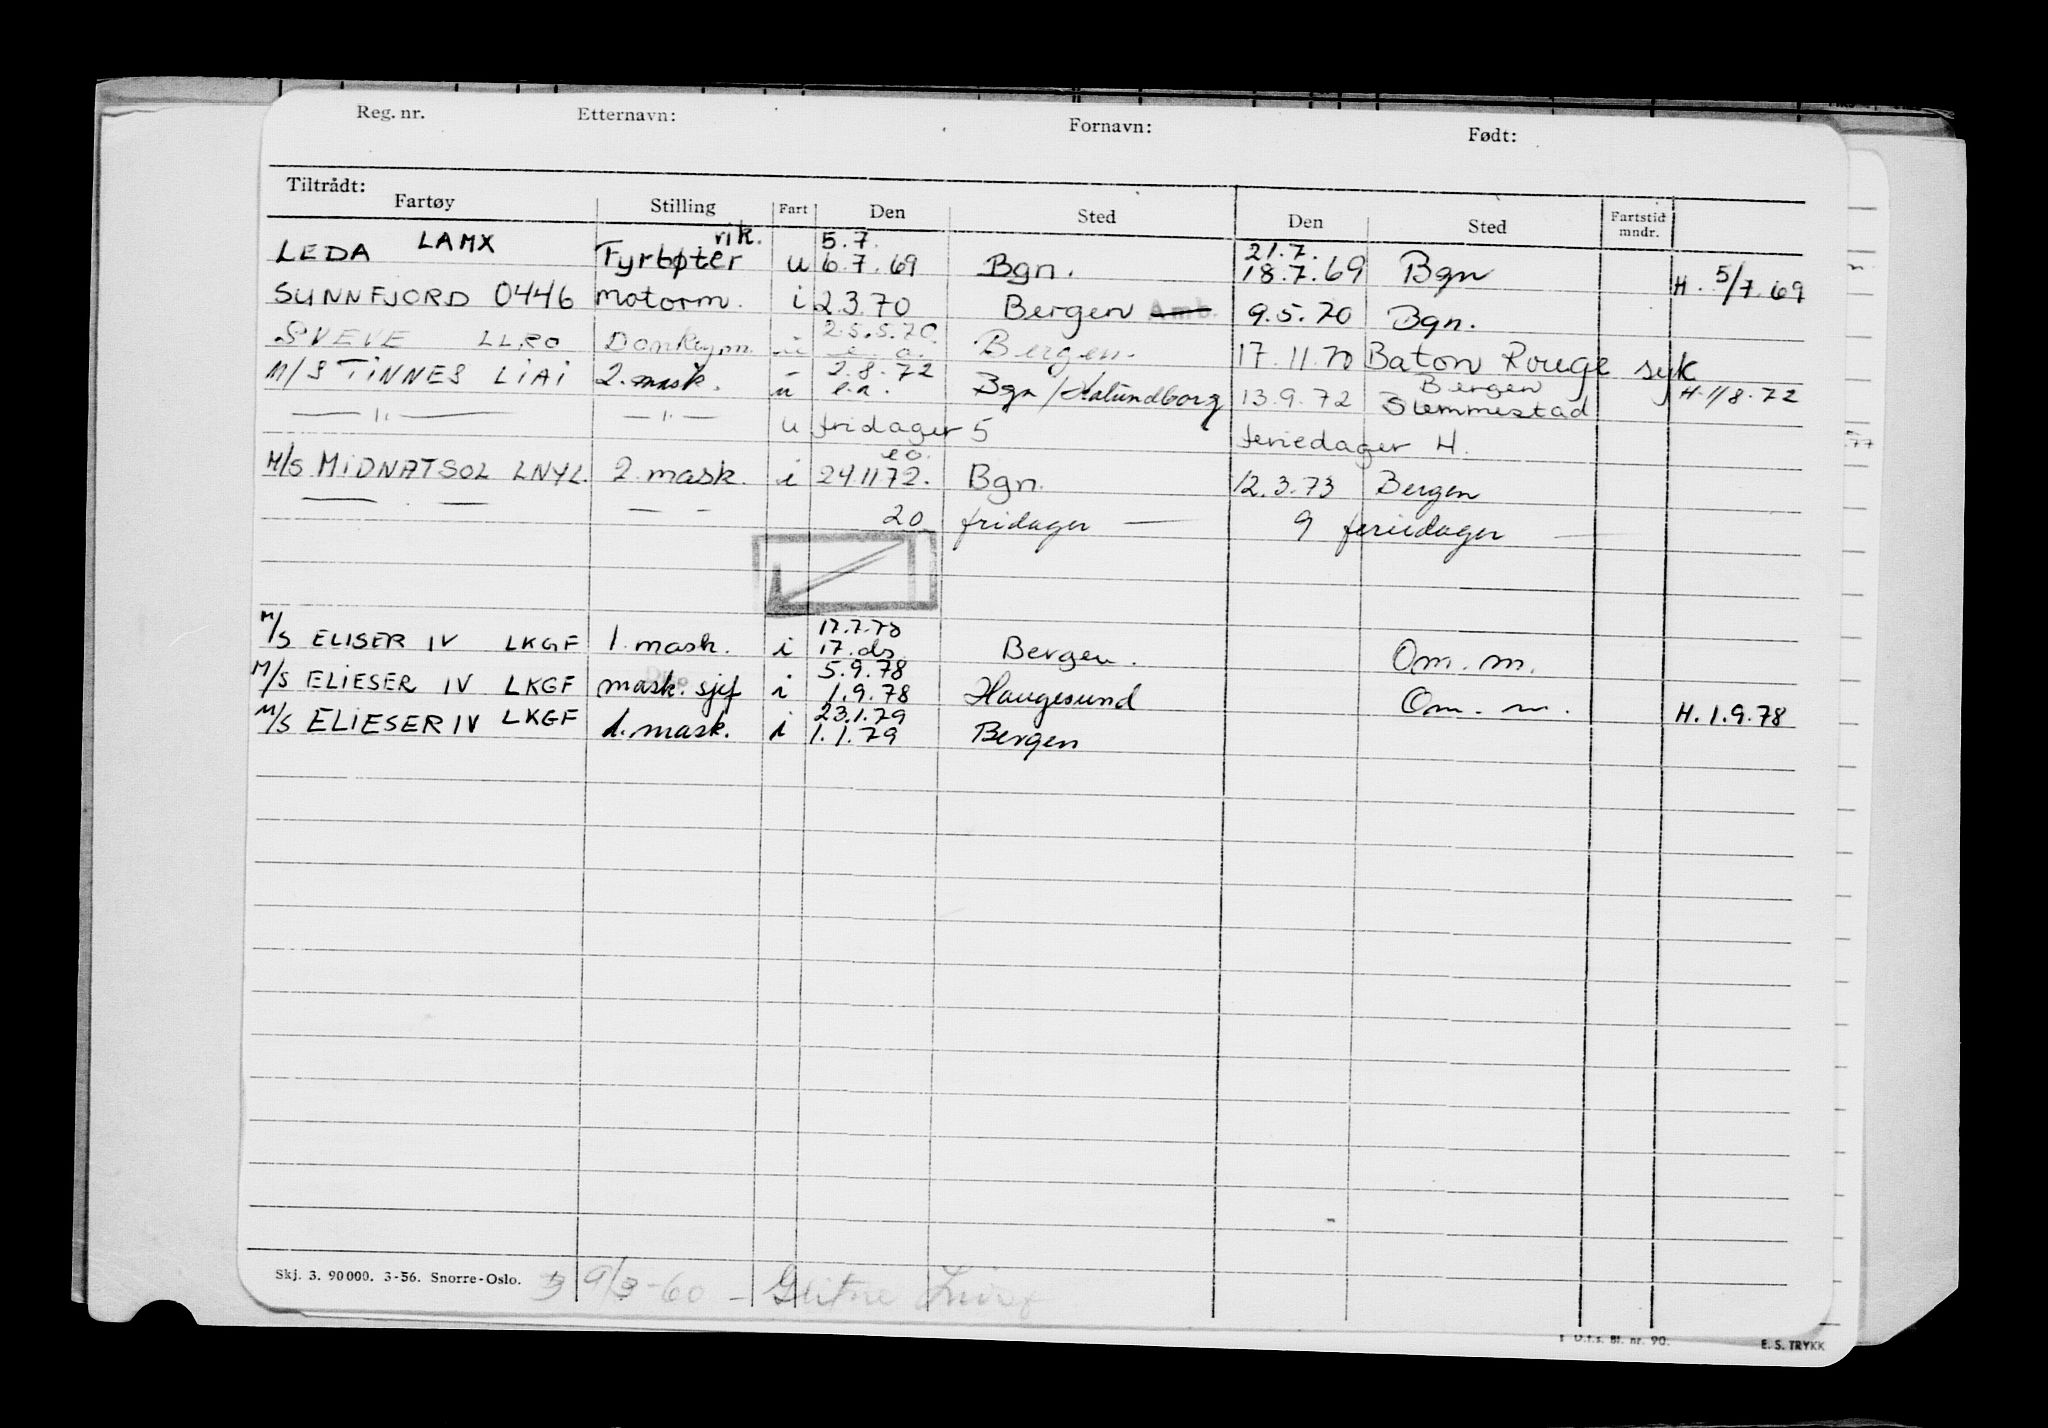 Reg. nr. Etternavn: Fornavn: Født:
Tiltrådt:
Fartøy Stilling Fart Den Sted Den Sted Fartstid mndr.
vik. 5.7. 21.7.
LEDA LAMX Fyrbøter u 6.7.69 Bgn. 18.7.69 Bgn H. 5/7.69
SUNNFJORD 0446 motorm. i 2.3.70 Bergen Amb. 9.5.70 Bgn.
25.5.70
SVEVE LLRO Donkeym. u e.o. Bergen. 17.11.70 Baton Rouge syk
2.8.72 Bergen
M/S TINNES LIAI 2. mask. u e.a. Bgn/Kalundborg 13.9.72 Slemmestad H. 1/8.72
— " — — " — u fridager 5 feriedager 4.
e.o.
M/S MIDNATSOL LNYL. 2. mask. i 24.11.72. Bgn. 12.3.73 Bergen
— — — — 20 fridager — 9 feriedager —
17.7.78
M/S ELISER IV LKGF 1. mask. i 17. ds. Bergen. Om. m.
5.9.78
M/S ELIESER IV LKGF mask. sjef i 1.9.78 Haugesund Om. m. H. 1.9.78
23.1.79
M/S ELIESER IV LKGF 1. mask. i 1.1.79 Bergen
Skj. 3. 90000. 3-56. Snorre-Oslo. 9/3-60 - Glitne
Bl. nr. 90. E. S. TRYKK